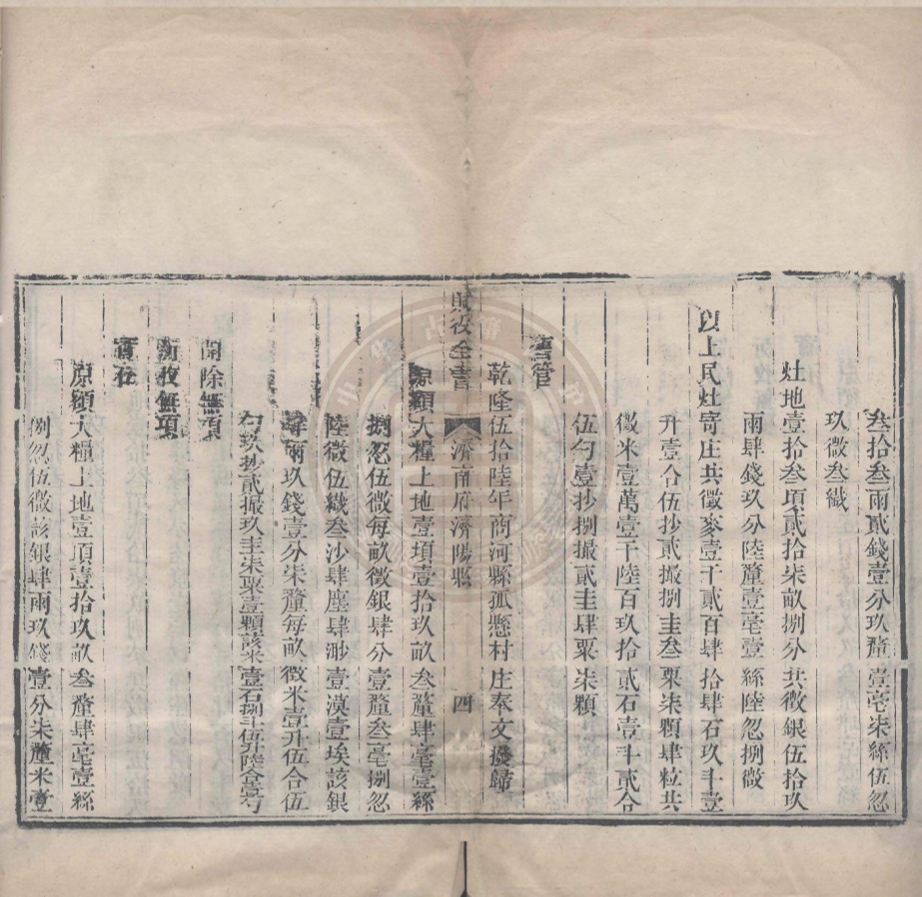 叁拾叁兩貳錢壹分玖釐壹亳柒絲伍忽
玖微叁纖
灶地壹拾叁項貳拾柒畝捌分共徵銀伍拾玖
兩肆錢玖分陸釐壹亳壹絲陸忽捌微
以上民灶寄庄共徵麥壹千貳百肆拾肆石玖斗壹
升壹合伍抄貳撮捌圭叁粟柒顆肆粒共
徵米壹萬壹千陸百玖拾貳石壹斗貳合
伍勺壹抄捌撮貳圭肆粟柒顆
舊管
乾隆伍拾陸年商河縣孤懸村庄奉文撥歸
賦役全書 濟南府濟陽縣 四
原額大糧上地壹項壹拾玖畝叁釐肆亳壹絲
捌忽伍微每畝徵銀肆分壹釐叁亳捌忽
陸微伍纖叁沙肆塵肆渺壹漠壹埃該銀
肆兩玖錢壹分柒釐每畝徵米壹升伍合伍
勺玖抄貳撮玖圭柒粟壹顆該米壹石捌斗伍升陸合壹勺
開除無項
新收無項
實在
原額大糧上地壹項壹拾玖畝叁釐肆亳壹絲
捌忽伍微該銀肆兩玖錢壹分柒釐米壹